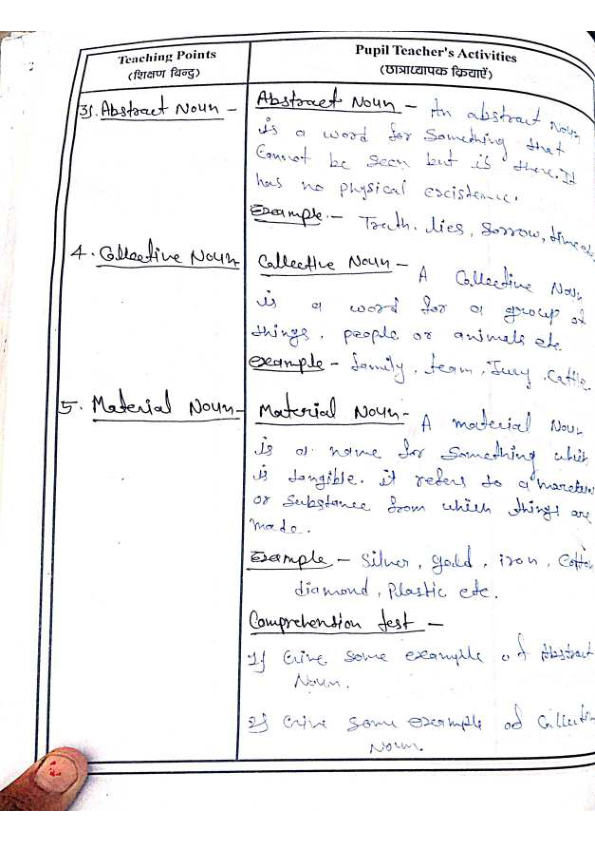 Teaching Points
(शिक्षण बिन्दु)
Pupil Teacher's Activities
(छात्राध्यापक क्रियाएँ)
3). Abstract Noun -
Abstract Noun - An abstract Noun
is a word for something that
Cannot be seen but is there. It
has no physical excistence.
Example - Truth. lies, Sorrow, time
4. Collective Noun
Collective Noun - A Collective Noun
is a word for a group of
things, people or animals etc.
example - family, team, Jury, Cattle
5. Material Noun -
Material Noun - A material Noun
is a name for something which
is tangible. it refers to a
or Substance from which things are
made.
Example - Silver, gold, iron, Cotton
diamond, Plastic etc.
Comprehension test -
1) Give some example of Abstract
Noun.
2) Give some example of Collective
Noun.